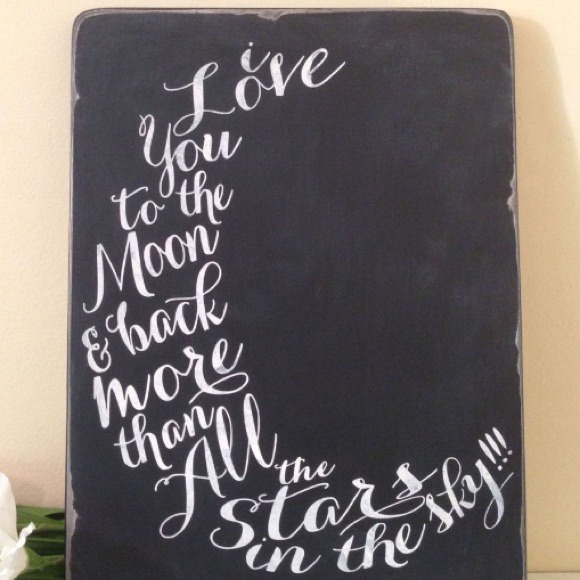 i
Love
You
to the
Moon
& back
more
than
All
the
Stars
in the sky!!!